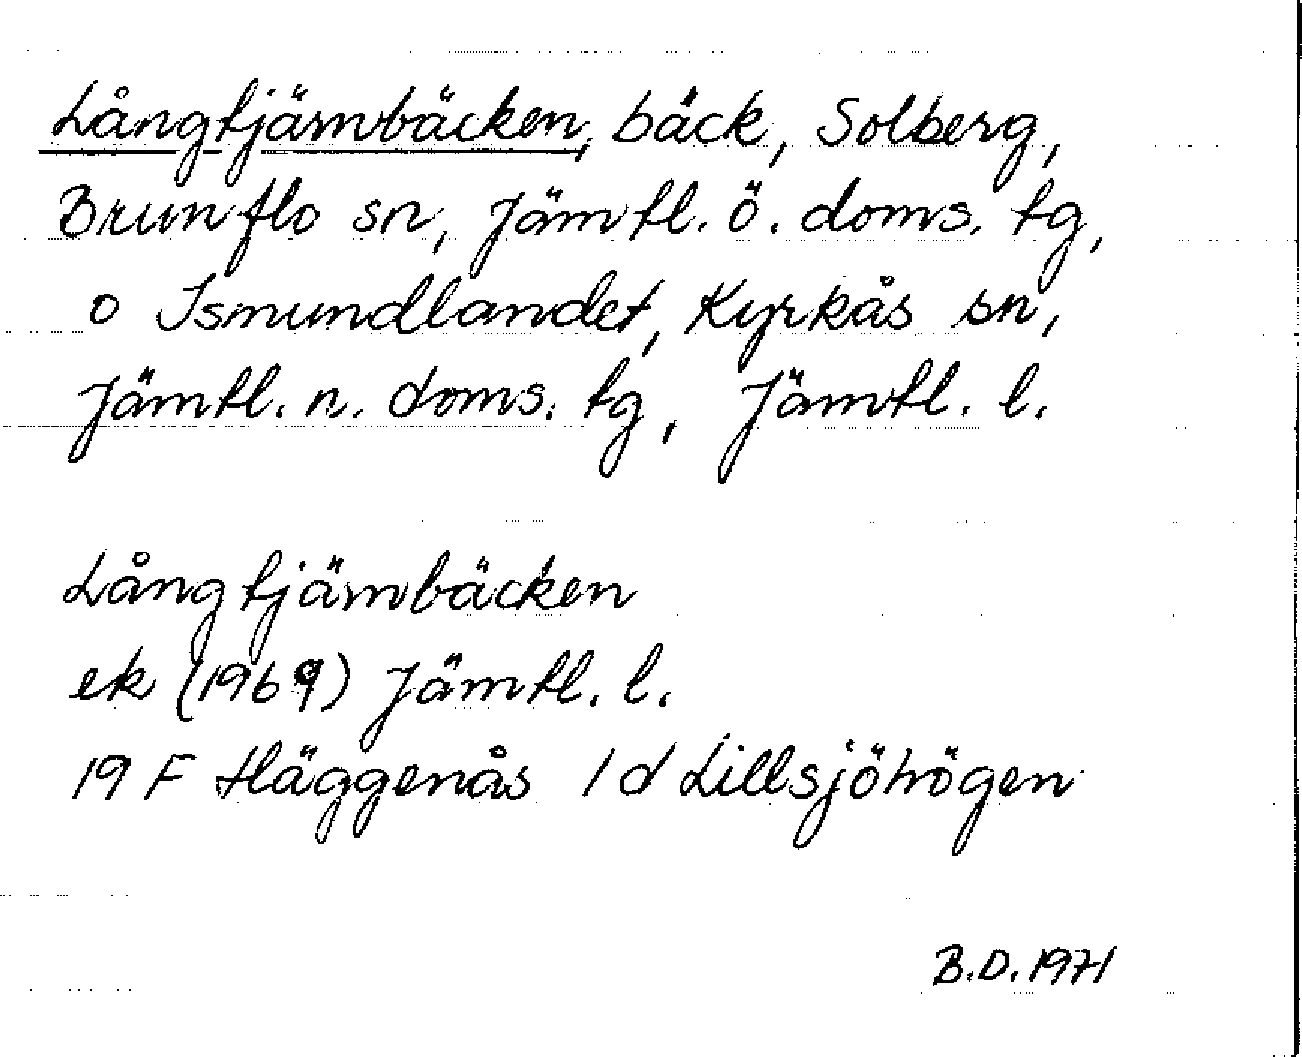 Långtjärnbäcken, bäck, Solberg,
Brunflo sn, Jämtl. ö. doms. tg,
o Ismundlandet, Kyrkås sn,
Jämtl. n. doms. tg, Jämtl. l.
Långtjärnbäcken
ek (1969) Jämtl. l.
19 F Häggenås 1d Lillsjöhögen
B.D. 1971